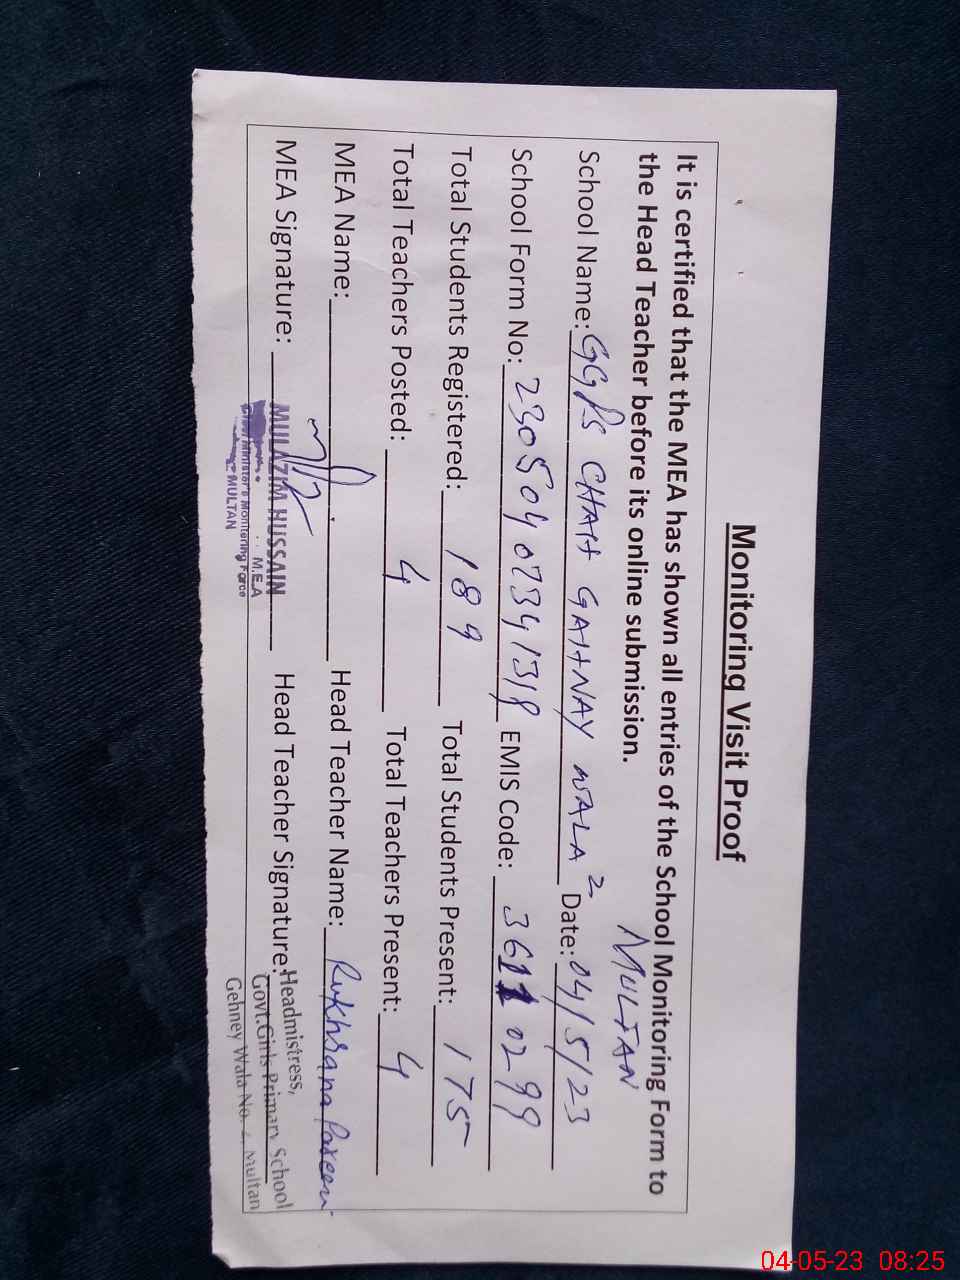 Monitoring Visit Proof
It is certified that the MEA has shown all entries of the School Monitoring Form to
the Head Teacher before its online submission.
MULTAN
School Name: GGPS CHAH GAHNAY WALA 2 Date: 04/5/23
School Form No: 23050407341318 EMIS Code: 36110299
Total Students Registered: 189 Total Students Present: 175
Total Teachers Posted: 4 Total Teachers Present: 4
MEA Name: Head Teacher Name: Rukhsana Parveen
MEA Signature: Head Teacher Signature:
MULAZIM HUSSAIN
M.E.A
Chief Minister's Monitoring Force
MULTAN
Headmistress,
Govt.Girls Primary School
Gehney Wala No. 2 Multan
04-05-23 08:25